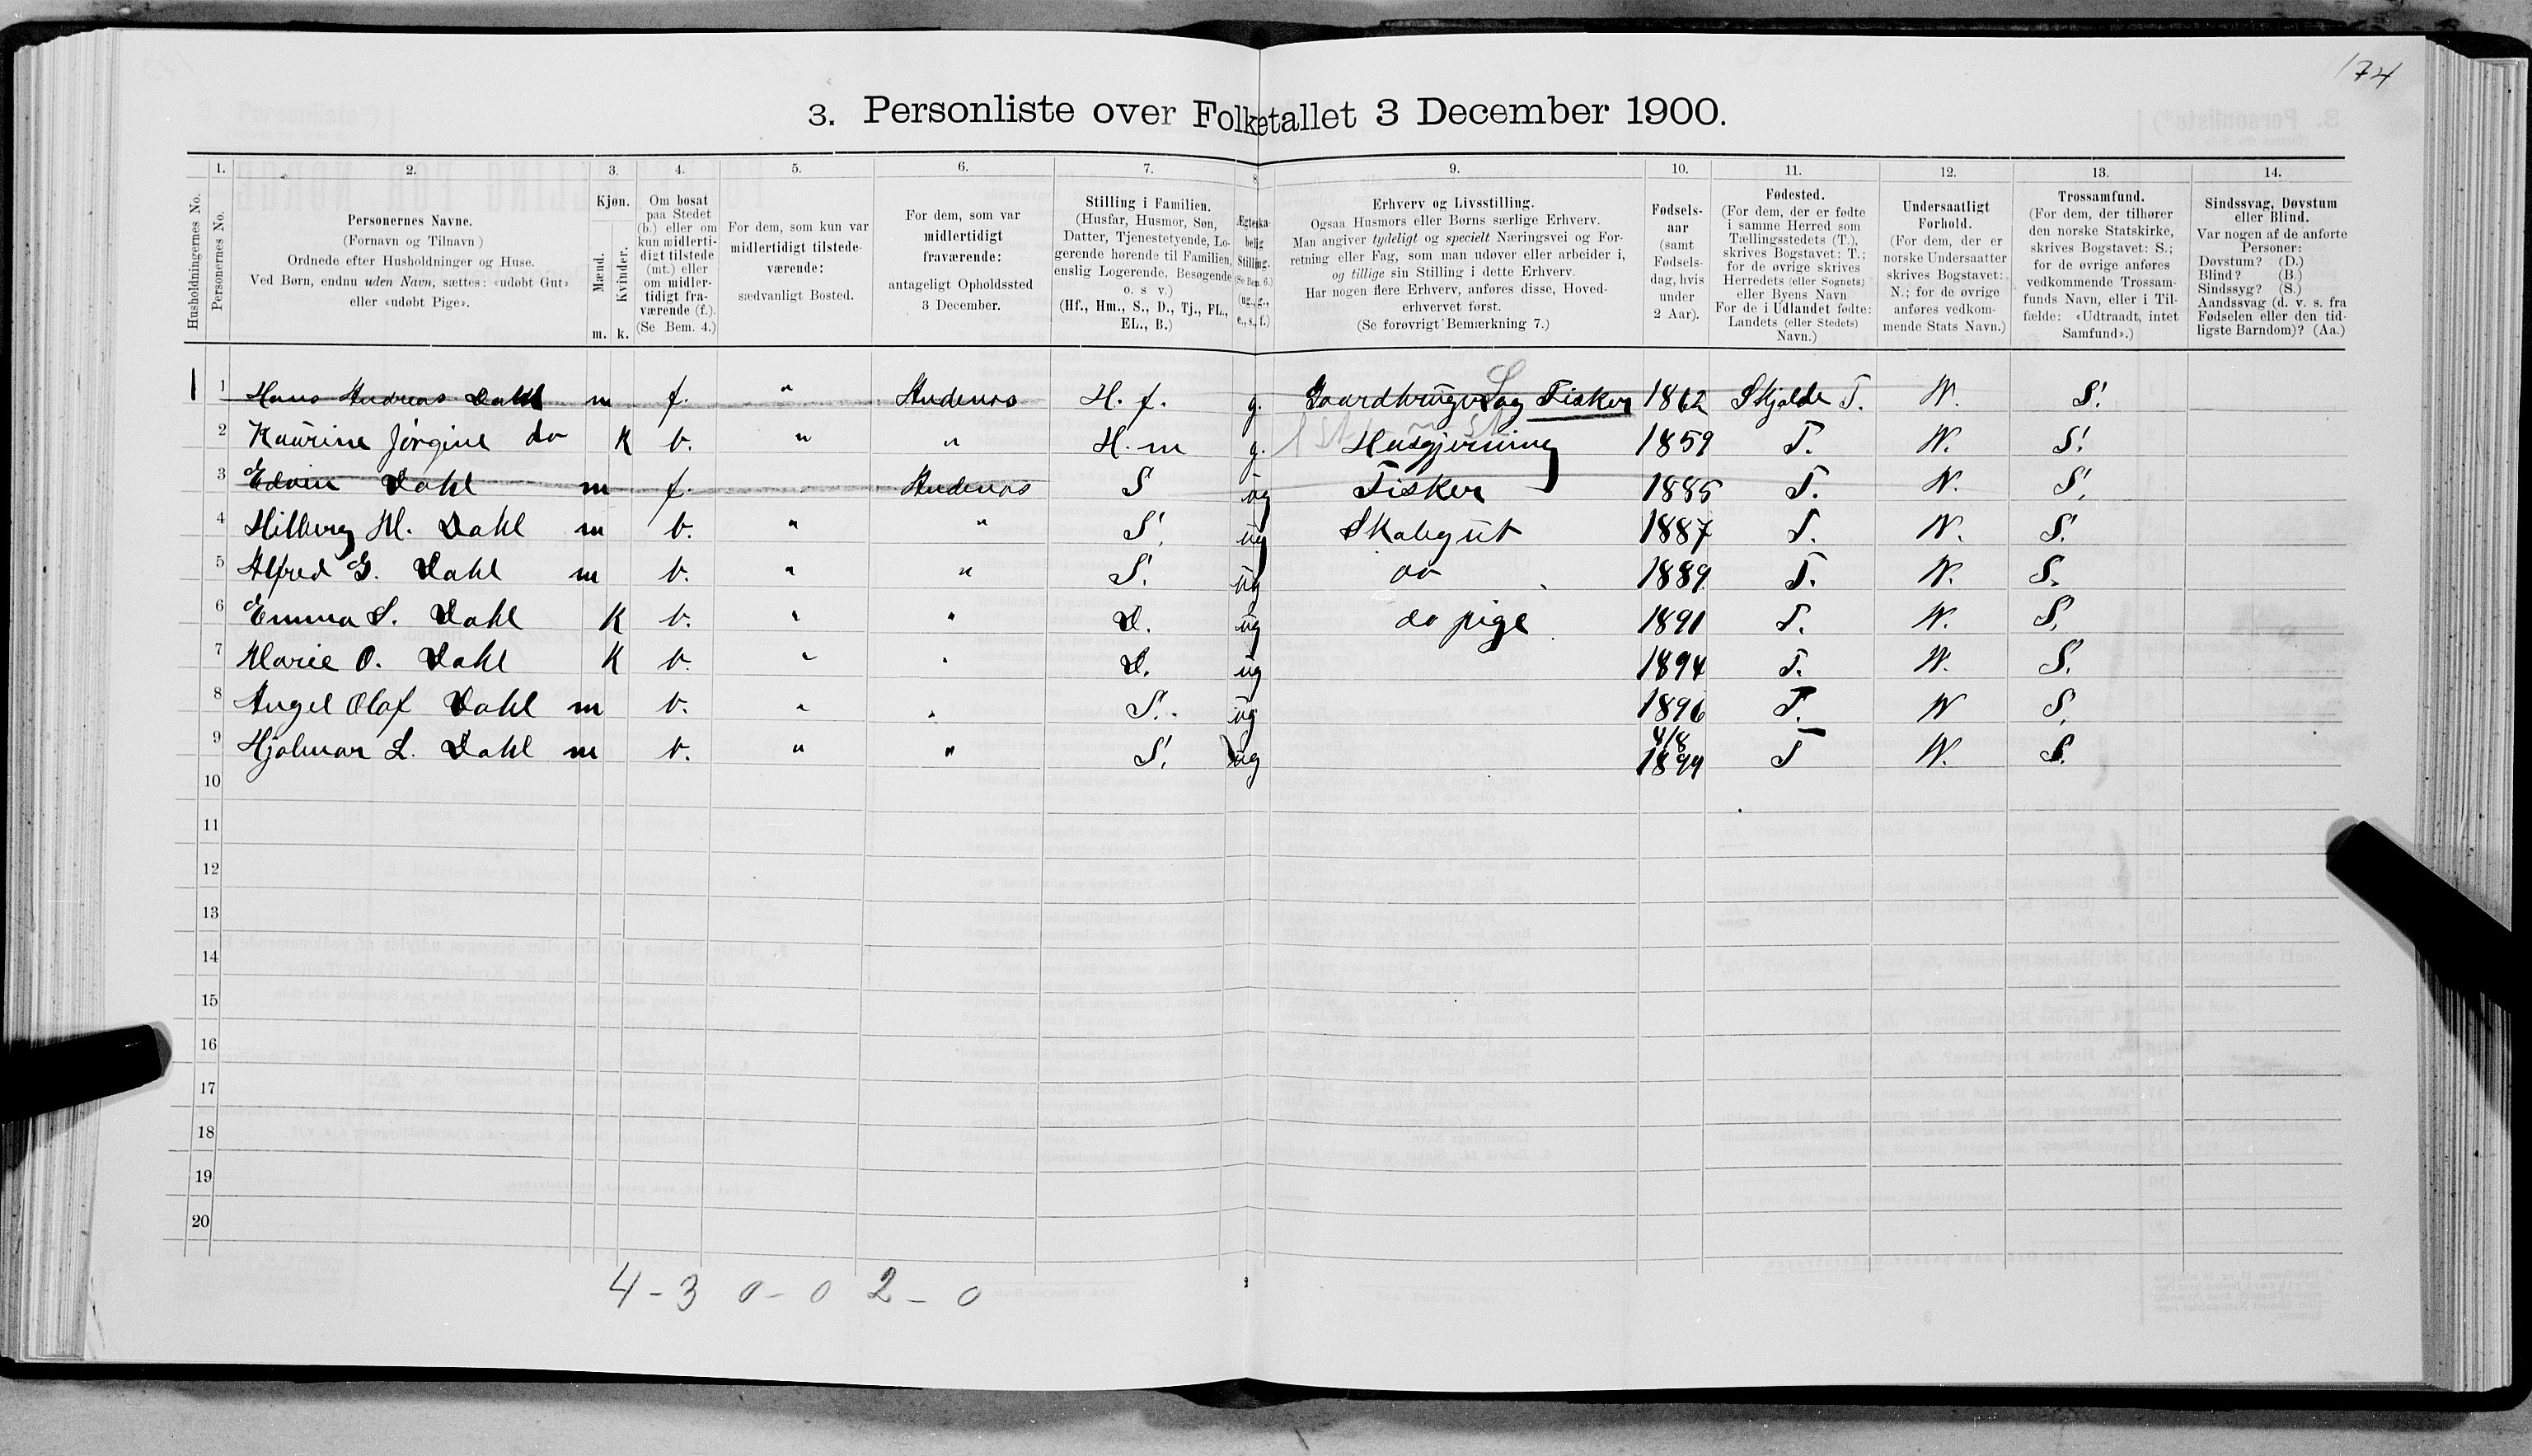 174
3. Personliste over Folketallet 3 December 1900.
Husholdningernes No.
1. Personernes No.
2. Personernes Navne.
(Fornavn og Tilnavn)
Ordnede efter Husholdninger og Huse.
Ved Børn, endnu uden Navn, sættes: «udøbt Gut»
eller «udøbt Pige».
3. Kjøn.
Mænd. Kvinder.
m. k.
4. Om bosat
paa Stedet
(b.) eller om
kun midlerti-
digt tilstede
(mt.) eller
om midler-
tidigt fra-
værende (f.).
(Se Bem. 4.)
5. For dem, som kun var
midlertidigt tilstede-
værende:
sædvanligt Bosted.
6. For dem, som var
midlertidigt
fraværende:
antageligt Opholdssted
3 December.
7. Stilling i Familien.
(Husfar, Husmor, Søn,
Datter, Tjenestetyende, Lo-
gerende hørende til Familien,
enslig Logerende, Besøgende
o. s v.)
(Hf., Hm., S., D., Tj., FL.,
EL., B.)
8. Ægteska-
belig
Stilling.
(Se Bem. 6.)
(ug., g.,
e., s., f.)
9. Erhverv og Livsstilling.
Ogsaa Husmors eller Børns særlige Erhverv.
Man angiver tydeligt og specielt Næringsvei og For-
retning eller Fag, som man udøver eller arbeider i,
og tillige sin Stilling i dette Erhverv.
Har nogen flere Erhverv, anføres disse, Hoved-
erhvervet først.
(Se forøvrigt Bemærkning 7.)
10. Fødsels-
aar
(samt
Fødsels-
dag, hvis
under
2 Aar).
11. Fødested.
(For dem, der er fødte
i samme Herred som
Tællingsstedets (T.),
skrives Bogstavet: T.;
for de øvrige skrives
Herredets (eller Sognets)
eller Byens Navn
For de i Udlandet fødte:
Landets (eller Stedets)
Navn.)
12. Undersaatligt
Forhold.
(For dem, der er
norske Undersaatter
skrives Bogstavet:
N.; for de øvrige
anføres vedkom-
mende Stats Navn.)
13. Trossamfund.
(For dem, der tilhører
den norske Statskirke,
skrives Bogstavet: S.;
for de øvrige anføres
vedkommende Trossam-
funds Navn, eller i Til-
fælde: «Udtraadt, intet
Samfund».)
14. Sindssvag, Døvstum
eller Blind.
Var nogen af de anførte
Personer:
Døvstum? (D.)
Blind? (B.)
Sindssyg? (S.)
Aandssvag (d. v. s. fra
Fødselen eller den tid-
ligste Barndom)? (Aa.)
1 Hans Andreas Dahl m f. " Andenes H. f. g. Gaardbruger og Fisker 1862 Skjolde T. N. S.
2 Kaurine Jørgine do K b. " " H. m g. Husgjerning 1859 T. N. S.
3 Edvin Dahl m f. Andenes S ug Fisker 1885 T. N. S.
4 Hilberg M. Dahl m b. " " S. ug Skolegut 1887 T. N. S.
5 Alfred G. Dahl m b. " " S. ug do 1889 T. N. S.
6 Emma S. Dahl K b. " " D. ug do pige 1891 T. N. S.
7 Marie O. Dahl K b. " " D. ug 1894 T. N. S.
8 Angel Olaf Dahl m b. " " S. ug 1896 T. N S.
9 Hjalmar L. Dahl m b. " " S. ug 4/8 1899 T N. S.
10
11
12
13
14
15
16
17
18
19
20
4 - 3 0 - 0 2 - 0